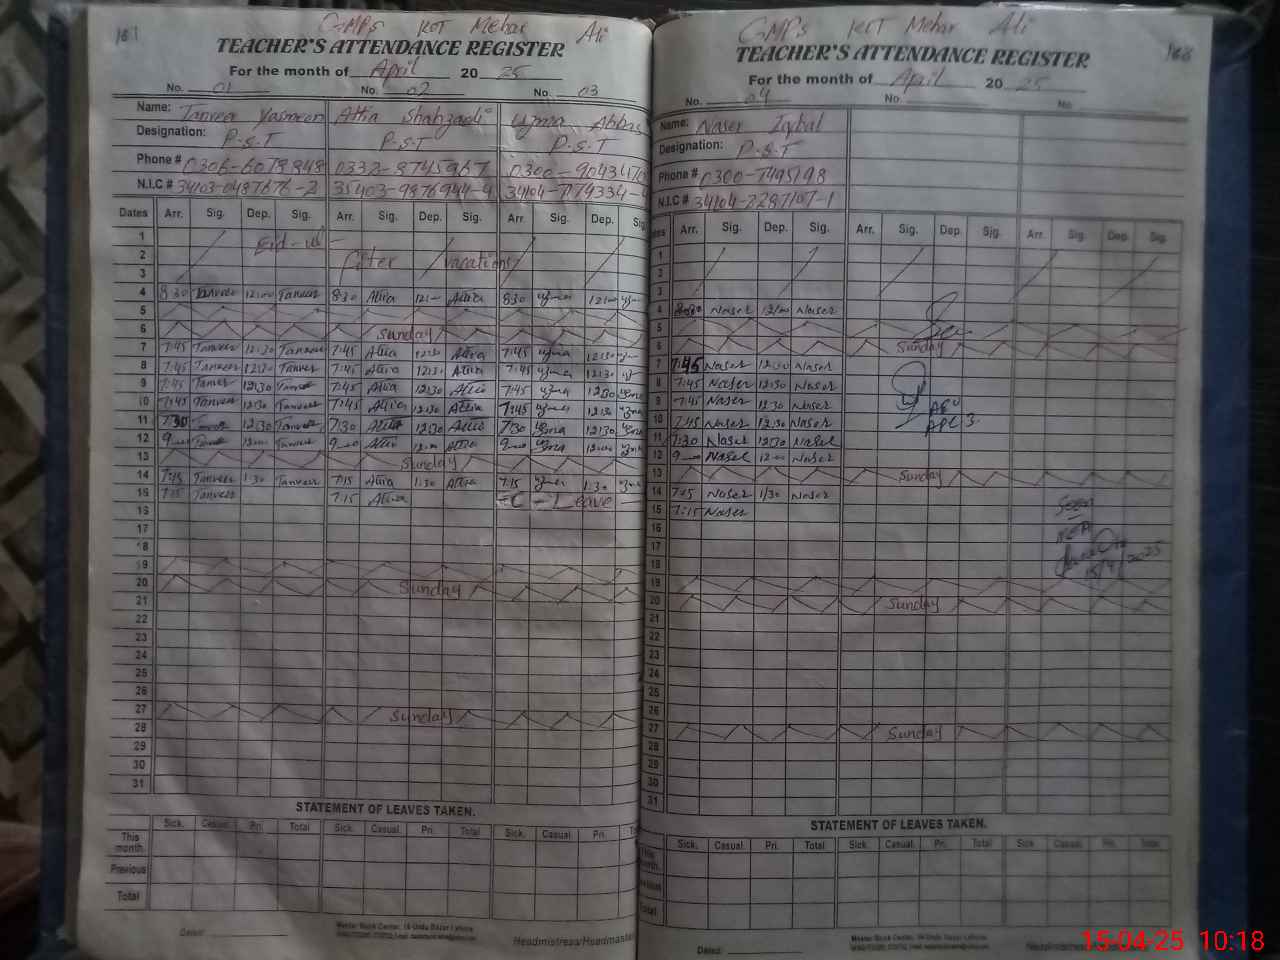 161
GMPS KOT Mehar Ali
TEACHER'S ATTENDANCE REGISTER
For the month of April 2025
No. 01 No. 02 No. 03
Name: Tanveer Yasmeen Attia Shahzadi Uzma Abbas
Designation: P.S.T P.S.T P.S.T
Phone # 0306-6078848 0332-8745967
N.I.C # 34103-0487676-2 35403-9876944-4
Dates Arr. Sig. Dep. Sig. Arr. Sig. Dep. Sig. Arr. Sig. Dep. Sig
1 Eid-ul-
2 Fiter vacations
3
4 8:30 Tanveer 12:00 Tanveer 8:30 Attia 12:00 Attia 8:30 Uzma 12:00
5
6 Sunday
7 7:45 Tanveer 12:30 Tanveer 7:45 Attia 12:30 Attia 7:45 Uzma 12:30
8 7:45 Tanveer 12:30 Tanveer 7:45 Attia 12:30 Attia 7:45 Uzma 12:30
9 7:45 Tanveer 12:30 Tanveer 7:45 Attia 12:30 Attia 7:45 Uzma 12:30 Uzma
10 7:45 Tanveer 12:30 Tanveer 7:45 Attia 12:30 Attia 7:45 Uzma 12:30 Uzma
11 7:30 Tanveer 12:30 Tanveer 7:30 Attia 12:30 Attia 7:30 Uzma 12:30 Uzma
12 9:00 Tanveer 12:00 Tanveer 9:00 Attia 12:00 Attia 9:00 Uzma 12:00 Uzma
13 Sunday
14 7:45 Tanveer 1:30 Tanveer 7:15 Attia 1:30 Attia 7:15 Uzma 1:30 Uzma
15 7:15 Tanveer 7:15 Attia C - Leave
16
17
18
19
20 Sunday
21
22
23
24
25
26
27 Sunday
28
29
30
31
STATEMENT OF LEAVES TAKEN.
Sick. Casual. Pri. Total Sick. Casual. Pri. Total Sick. Casual. Pri.
This month.
Previous
Total
Dated:
Master Book Center, 16-Urdu Bazar Lahore
Headmistress/Headmaster
GMPS KOT Mehar Ali
168
TEACHER'S ATTENDANCE REGISTER
For the month of April 2025
No. 04 No. No.
Name: Naser Iqbal
Designation: P.S.T
Phone # 0300-7495198
N.I.C # 34104-2287107-1
Arr. Sig. Dep. Sig. Arr. Sig. Dep. Sig. Arr. Sig. Dep. Sig.
1
2
3
4 8:30 Naser 12:00 Naser
5
6 Sunday
7 7:45 Naser 12:30 Naser
8 7:45 Naser 12:30 Naser
9 7:45 Naser 12:30 Naser
10 7:45 Naser 12:30 Naser
11 7:30 Naser 12:30 Naser
12 9:00 Naser 12:00 Naser
13 Sunday
14 7:15 Naser 1:30 Naser
15 7:15 Naser
16
17
18
19
20 Sunday
21
22
23
24
25
26
27 Sunday
28
29
30
31
AEO
Seen
15/4/2025
STATEMENT OF LEAVES TAKEN.
Sick. Casual Pri. Total Sick. Casual. Pri. Total Sick Casual. Pri. Total
This month.
Total
Dated:
Master Book Center, 16-Urdu Bazar Lahore
15-04-25 10:18